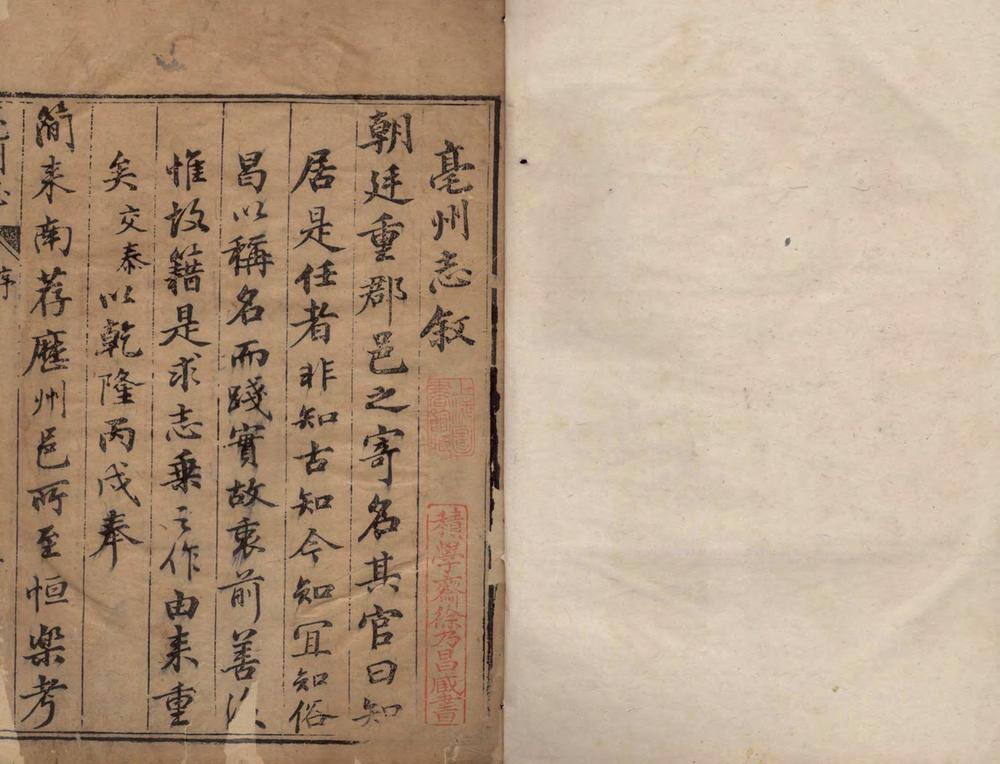 亳州志敘
積學齋徐乃昌藏書
朝廷重郡邑之寄名其官曰知
居是任者非知古知今知宜知俗
曷以稱名而踐實故衷前善後
惟故籍是求志乗之作由来重
矣交泰以乾隆丙戌奉
簡来南荐歴州邑所至恒樂考
序